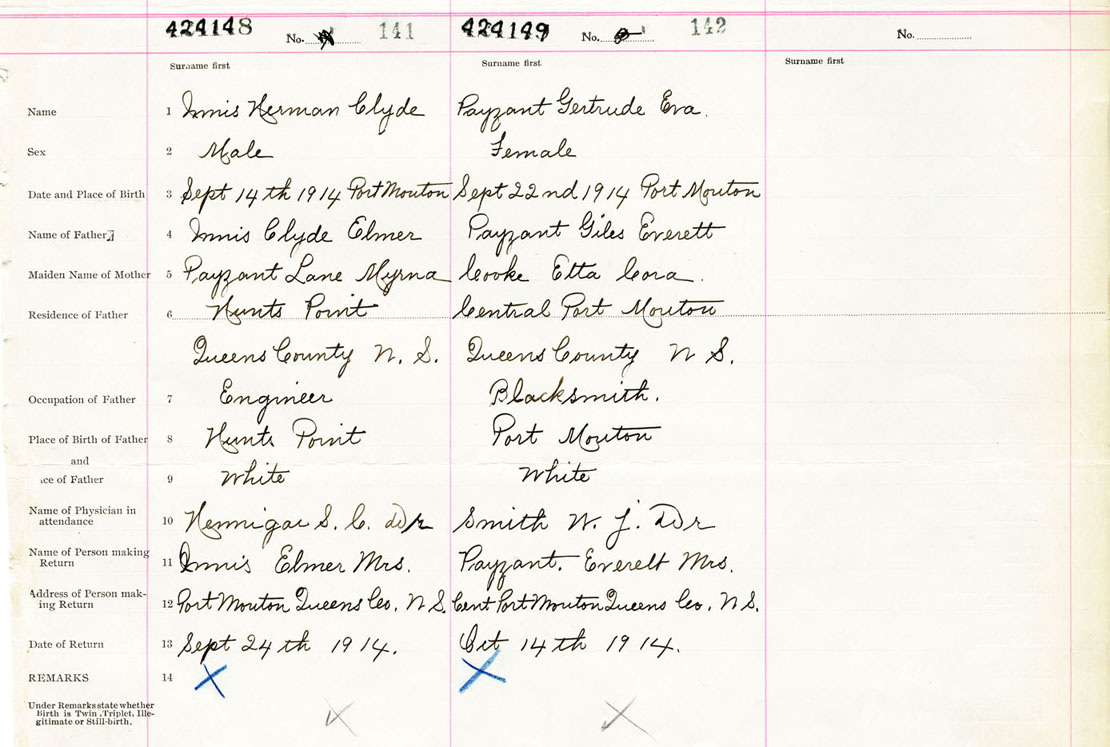 424148 No. 141 424149 No. 142 No.
Surname first Surname first Surname first
Name 1 Innis Herman Clyde Payzant Gertrude Eva.
Sex 2 Male Female
Date and Place of Birth 3 Sept 14th 1914 Port Mouton Sept 22nd 1914 Port Mouton
Name of Father 4 Innis Clyde Elmer Payzant Giles Everett
Maiden Name of Mother 5 Payzant Lane Myrna Cooke Etta Cora.
Residence of Father 6 Hunts Point Central Port Mouton
Queens County N. S. Queens County N S.
Occupation of Father 7 Engineer Blacksmith.
Place of Birth of Father 8 Hunts Point Port Mouton
and
ce of Father 9 White White
Name of Physician in
attendance 10 Hennigar S. C. Dr Smith W. J. Dr
Name of Person making
Return 11 Innis Elmer Mrs. Payzant. Everett Mrs.
Address of Person mak-
ing Return 12 Port Mouton Queens Co. N S. Cent Port Mouton Queens Co. N S.
Date of Return 13 Sept 24th 1914. Oct 14th 1914.
REMARKS 14 X X
Under Remarks state whether
Birth is Twin, Triplet, Ille-
gitimate or Still-birth.